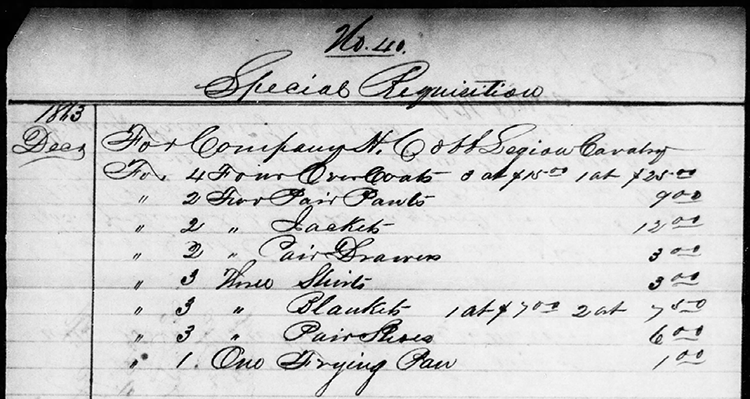 No. 40.
Special Requisition
1863
Dec,
For Company H. Cobb Legion Cavalry
For 4 Four Over Coats 3 at $15.00 1 at $25.00
" 2 Two Pair Pants 9.00
" 2 " Jackets 12.00
" 2 " Pair Drawers 3.00
" 3 Three Shirts 3.00
" 3 " Blankets 1 at $7.00 2 at 7.50
" 3 " Pair Shoes 6.00
" 1. One Frying Pan 1.00